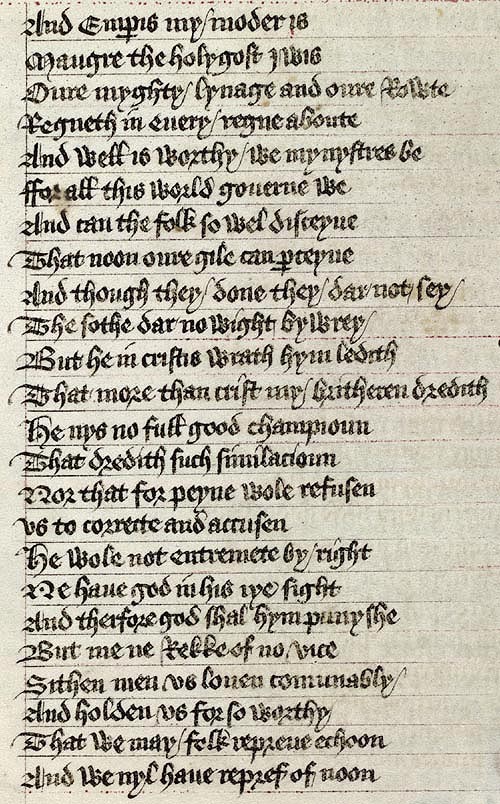 And Empis my/ moder is
Maugre the holygost ywis
Oure myghty/ lynage and oure Rowte
Regneth in euery/ regne aboute
And well is worthy/ we mynystres be
ffor all this world gouerne we
And can the folk so wel disceyue
That noon oure gile can pceyue
And though they/ done they/ dar not sey/
The sothe dar no wight bywrey/
But he in cristis wrath hym ledith
That more than crist my/ britheren dredith
He nys no full good champioun
That dredith such similacioun
Nor that for peyne wole refusen
vs to correcte and accusen
He wole not entremete by/ right
Ne haue god in his iye sight
And therfore god shal hym punyshe
But me ne Rekke of no vice
Sithen men vs louen comunably/
And holden vs for so worthy/
That we may/ folk repreue echoon
And we nyl haue repref of noon